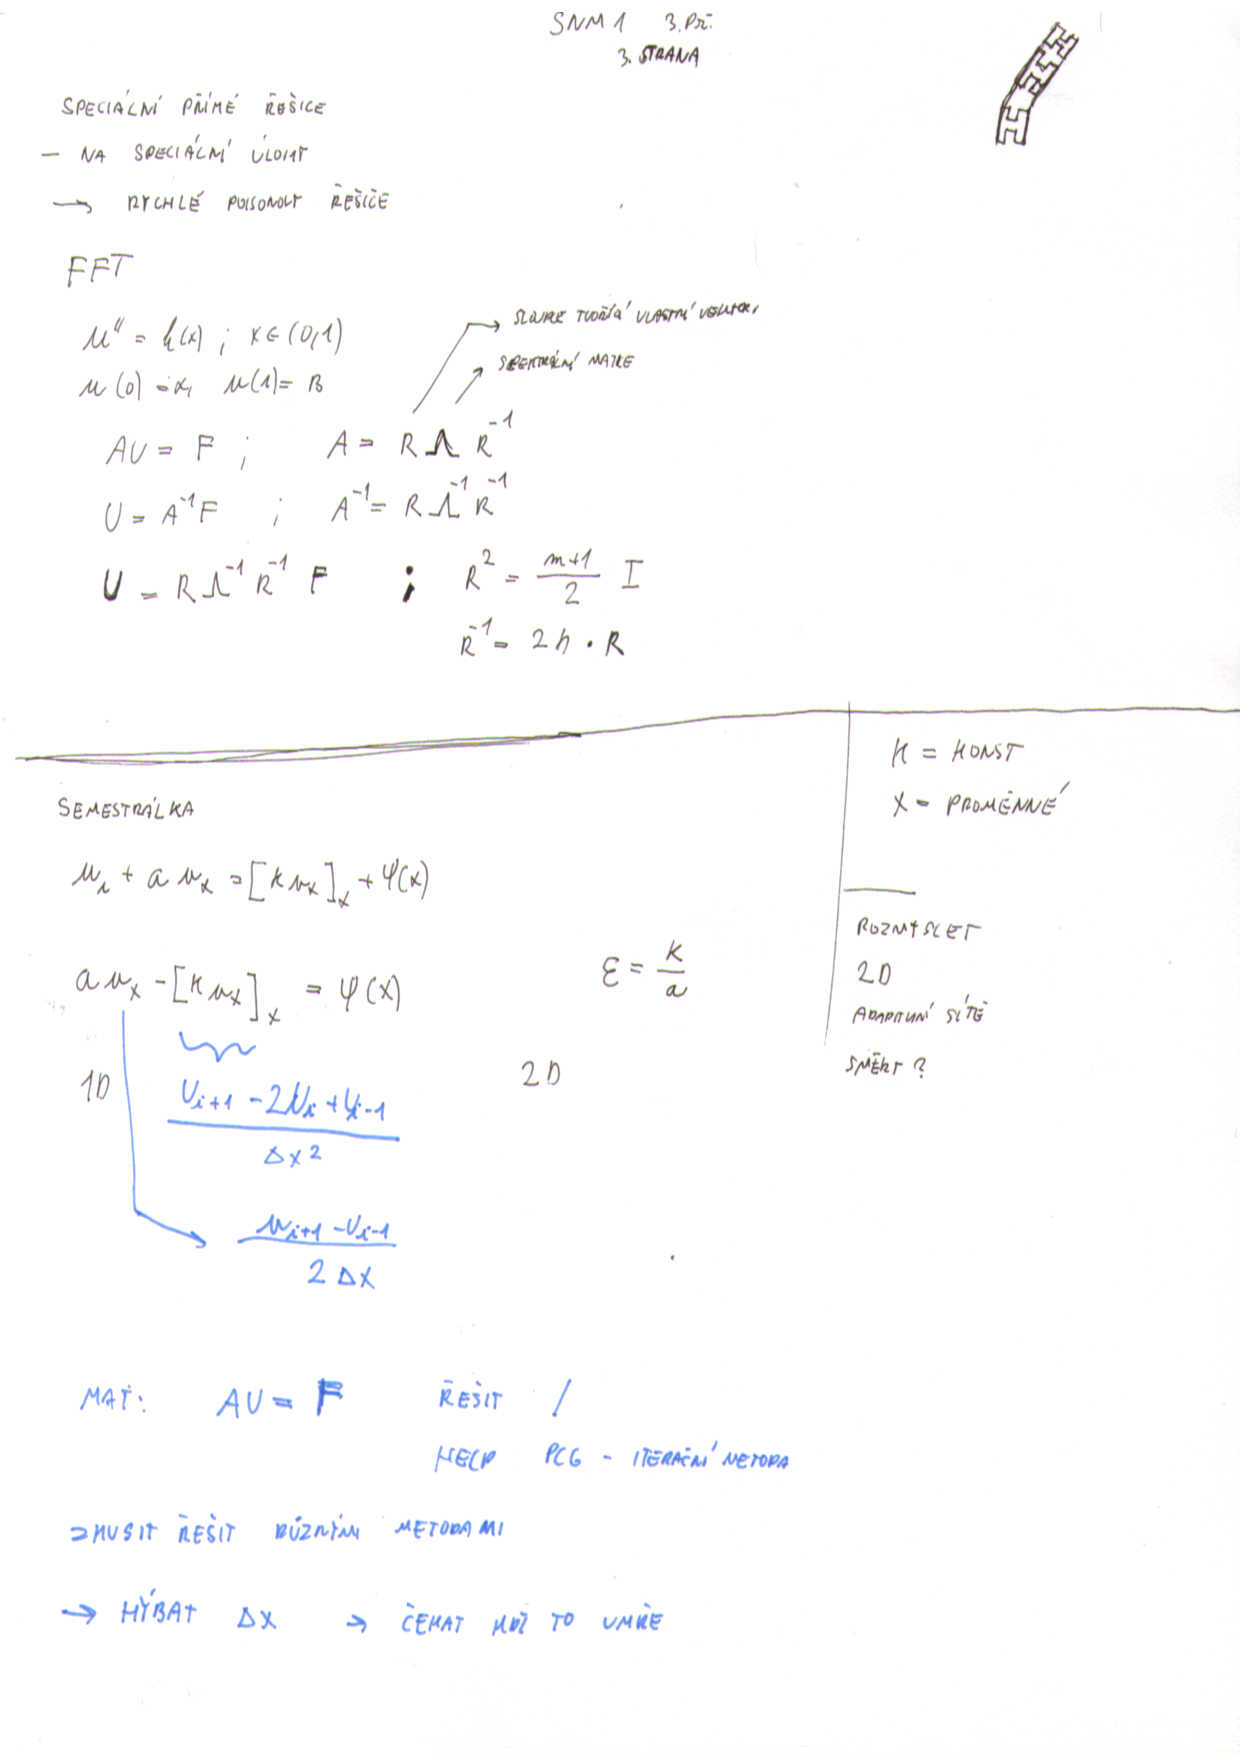 SNM1 3.PŘ.
3. STRANA
SPECIÁLNÍ PŘÍMÉ ŘEŠIČE
- NA SPECIÁLNÍ ÚLOHY
→ RYCHLÉ POISONOVY ŘEŠIČE
FFT
u'' = f(x) ; x ∈ (0,1)
u(0) = α, u(1) = B
SLOUPCE TVOŘÍ VLASTNÍ VEKTORY
SPEKTRÁLNÍ
AU = F ; A = R Λ R⁻¹
U = A⁻¹F ; A⁻¹ = R Λ⁻¹ R⁻¹
U = R Λ⁻¹ R⁻¹ F ; R² = (m+1)/2 I
R⁻¹ = 2h · R
K = KONST
X = PROMĚNNÉ
SEMESTRÁLKA
+ a u_x = [k u_x]_x + φ(x)
a u_x - [k u_x]_x = φ(x)
ε = k/a
ROZMYSLET
2D
ADAPTIVNÍ SÍTĚ
SMĚRY ?
1D
(U_{i+1} - 2U_i + U_{i-1}) / Δx²
2D
(U_{i+1} - U_{i-1}) / 2Δx
MAŤ: AU = F ŘEŠIT /
HELP PCG - ITERAČNÍ METODA
ZKUSIT ŘEŠIT RŮZNÝMI METODAMI
→ HÝBAT ΔX → ČEKAT KDY TO UMŘE